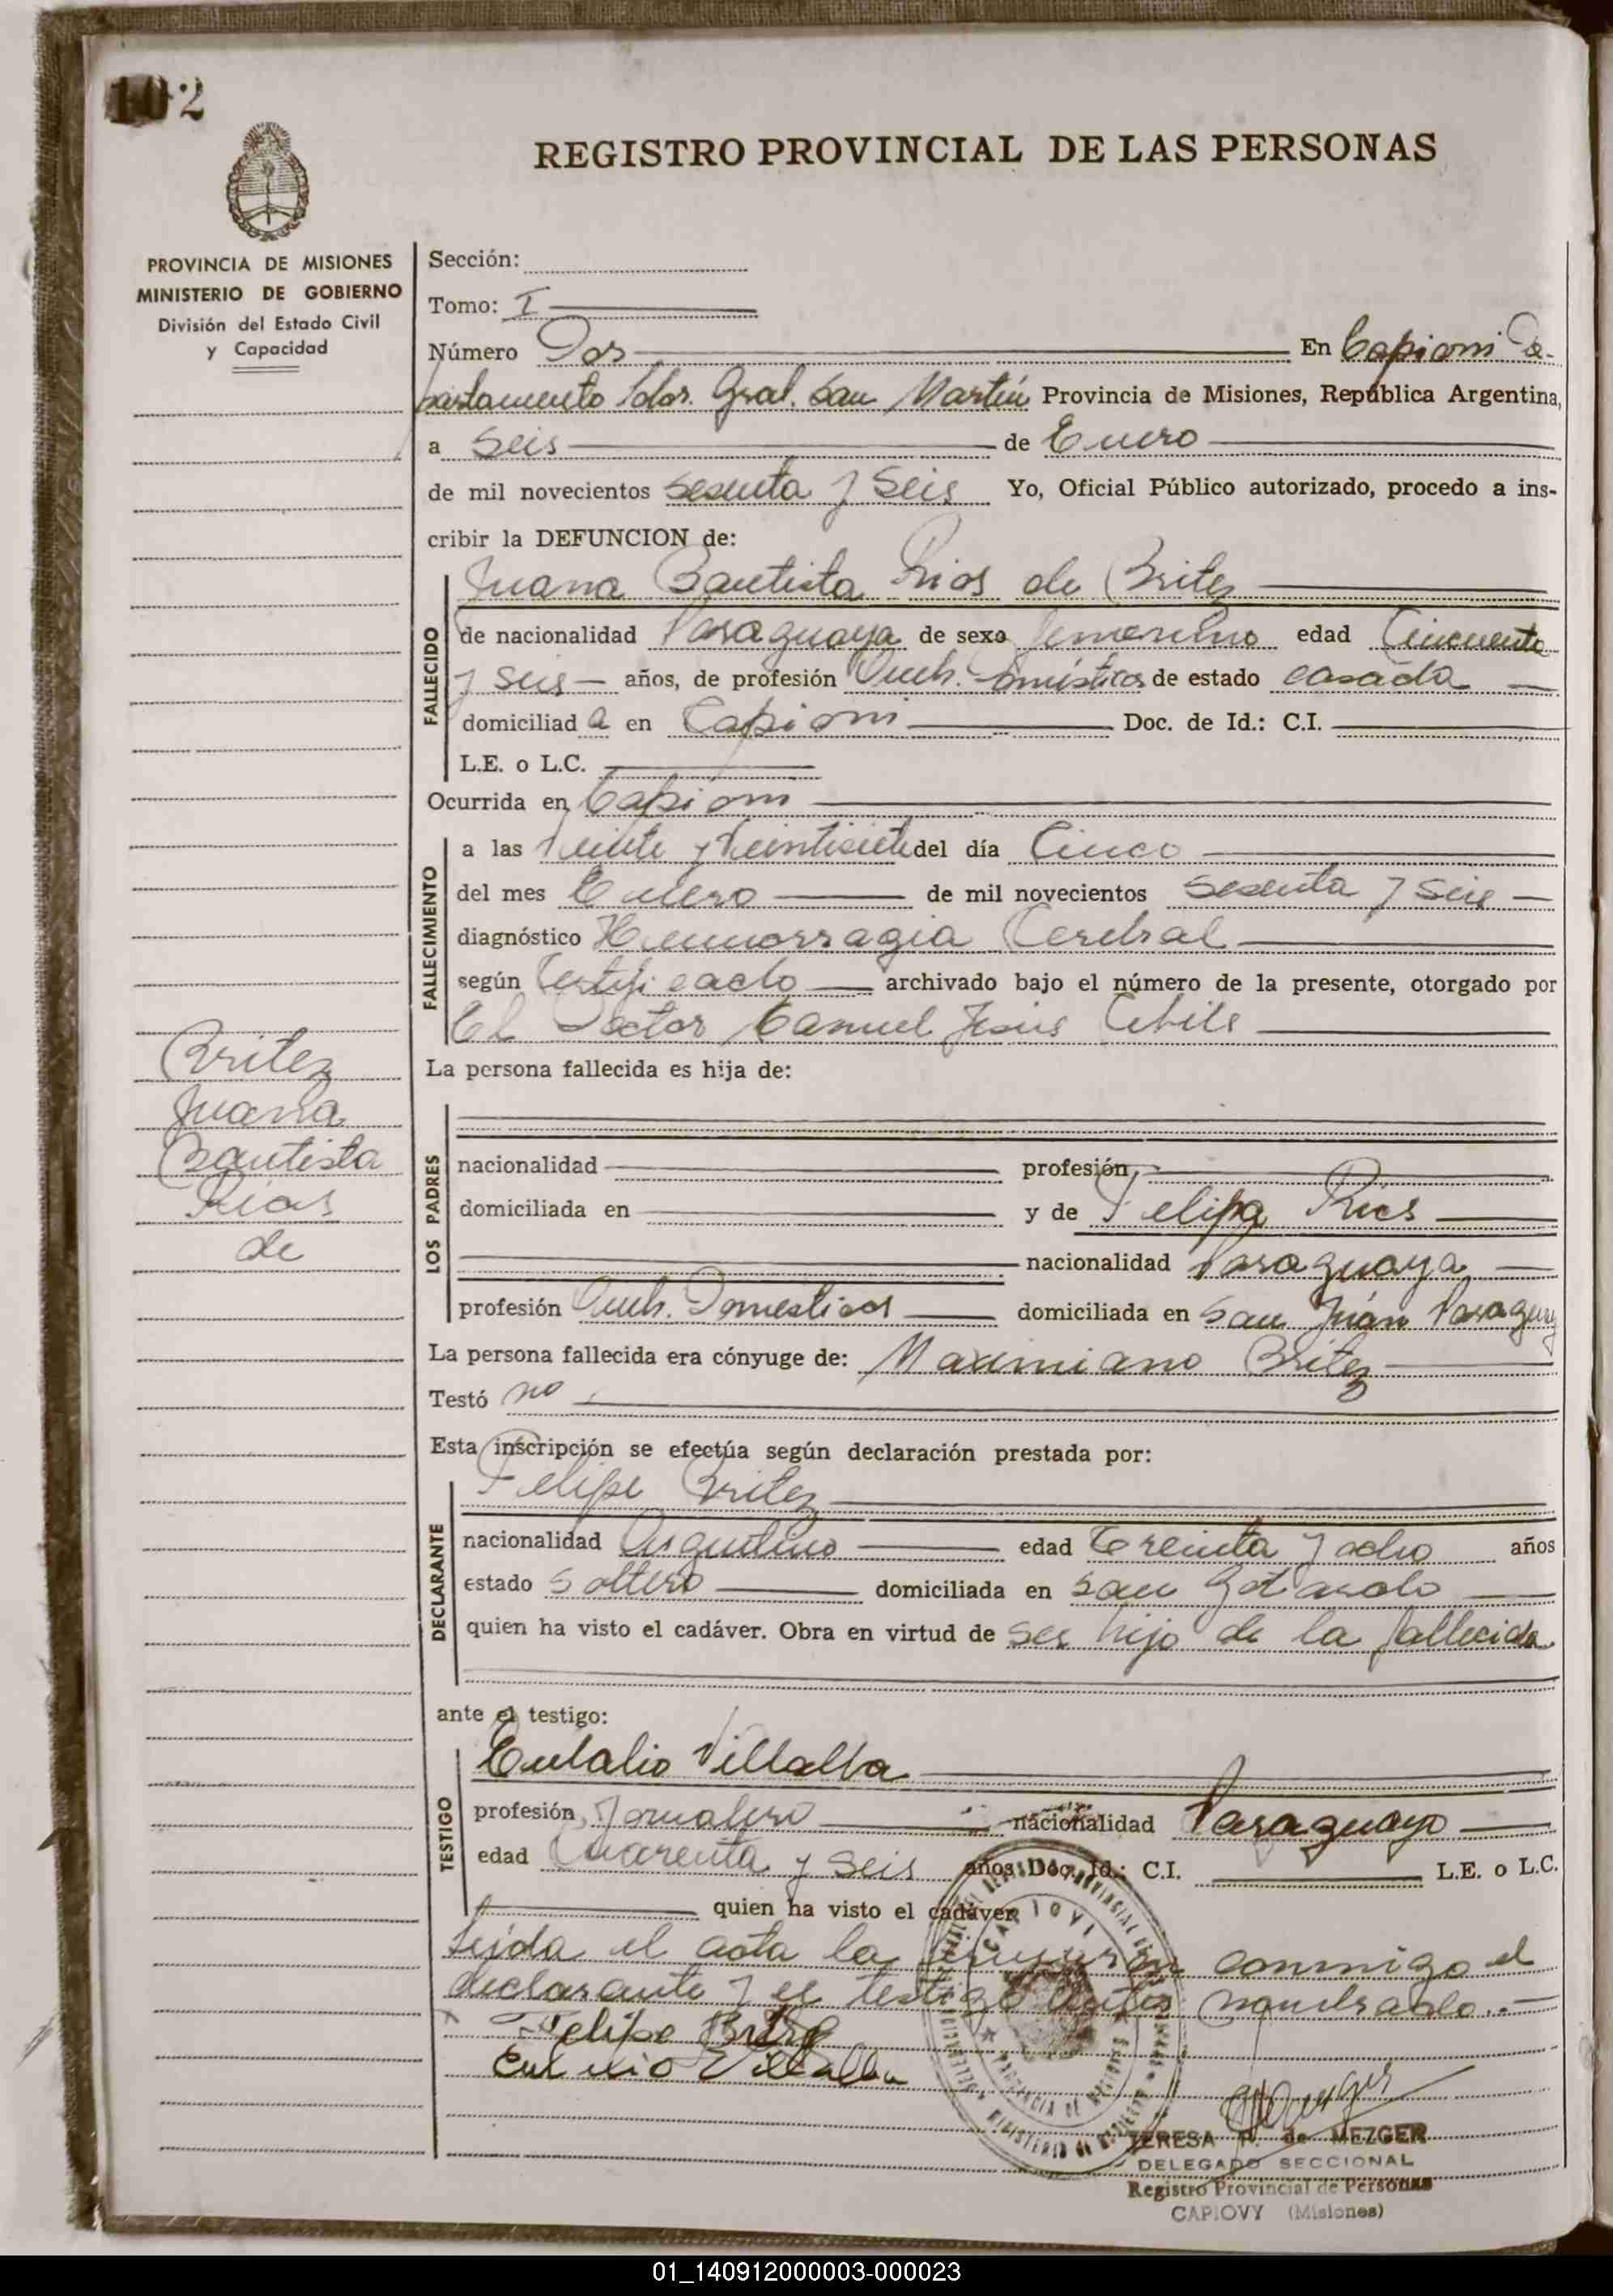 102
REGISTRO PROVINCIAL DE LAS PERSONAS
PROVINCIA DE MISIONES
MINISTERIO DE GOBIERNO
División del Estado Civil
y Capacidad
Sección:
Tomo: I
Número Dos En Capiovi De-
partamento Ldor. Gral. San Martín Provincia de Misiones, República Argentina,
a Seis de Enero
de mil novecientos sesenta y Seis Yo, Oficial Público autorizado, procedo a ins-
cribir la DEFUNCION de:
Juana Bautista Rios de Britez
FALLECIDO
de nacionalidad Paraguaya de sexo femenino edad Cincuenta
y seis años, de profesión Queh. Domésticos de estado casada
domiciliad a en Capiovi Doc. de Id.: C.I.
L.E. o L.C.
Ocurrida en Capiovi
FALLECIMIENTO
a las Veinte y Veintisiete del día Cinco
del mes Enero de mil novecientos sesenta y seis
diagnóstico Hemorragia Cerebral
según Certificado archivado bajo el número de la presente, otorgado por
El Doctor Manuel Jesus
La persona fallecida es hija de:
LOS PADRES
nacionalidad profesión
domiciliada en y de Felipa Rios
nacionalidad Paraguaya
profesión Queh. Domesticos domiciliada en San Juan Paraguay
La persona fallecida era cónyuge de: Maximiano Britez
Testó no
Esta inscripción se efectúa según declaración prestada por:
Felipe Britez
DECLARANTE
nacionalidad Argentino edad Treinta y ocho años
estado Soltero domiciliada en San Gotardo
quien ha visto el cadáver. Obra en virtud de ser hijo de la fallecida
ante el testigo:
Eulalio Villalba
TESTIGO
profesión Jornalero nacionalidad Paraguayo
edad Cuarenta y seis años Doc. Id.: C.I. L.E. o L.C.
quien ha visto el cadáver
Leida el acta la firmaron conmigo el
declarante y el testigo antes nombrado.-
Felipe Britez
Eulalio Villalba
Britez
Juana
Bautista
Rios
de
CAPIOVI
PROVINCIA DE MISIONES
TERESA P. de MEZGER
DELEGADO SECCIONAL
Registro Provincial de Personas
CAPIOVY (Misiones)
01_140912000003-000023